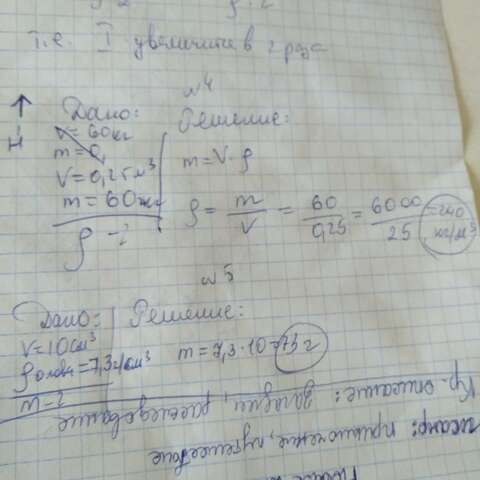 т.е. I увеличится в 2 раза
№4
Дано:
V = 60 кг
m = 0,
V = 0,25 м³
m = 60 кг
ρ - ?
Решение:
m = V · ρ
ρ = m/V = 60/0,25 = 6000/25 = 240 кг/м³
№5
Дано:
V = 10 см³
ρ олова = 7,3 г/см³
m - ?
Решение:
m = 7,3 · 10 = 73 г
Кр. описание: загадки, расследование
Жанр: приключение, путешествие